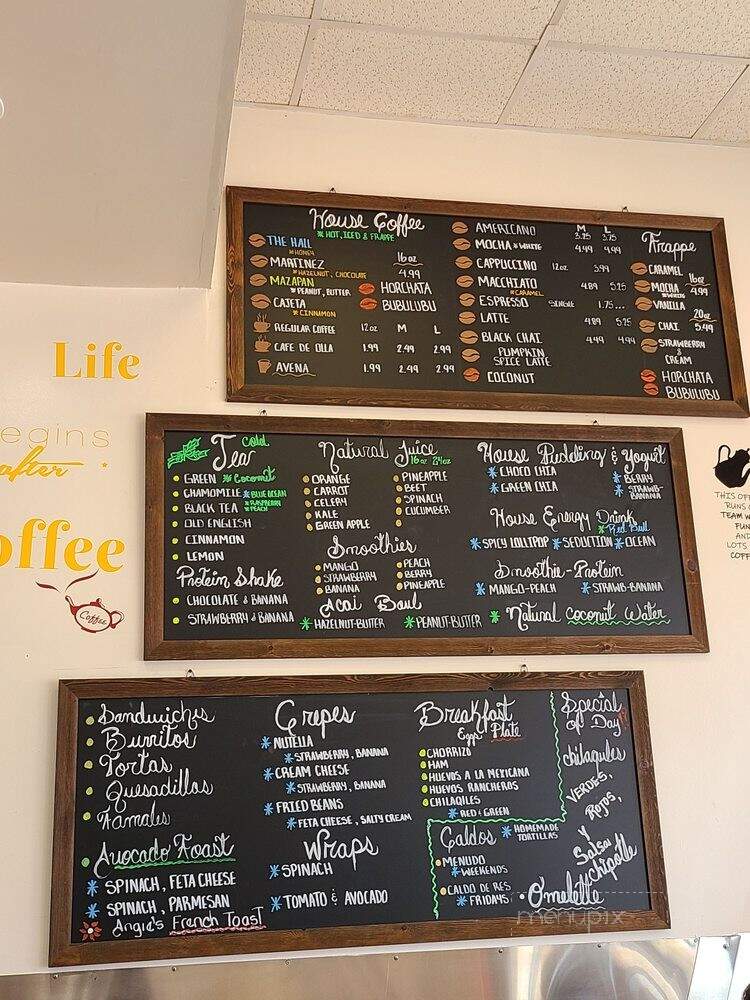 Life
egins
after
offee
Coffee
THIS OF
RUNS
TEAM W
FUN
AND
LOTS
COFF
House Coffee
* HOT, ICED & FRAPPE
THE HALL
* HONEY
MARTINEZ
* HAZELNUT, CHOCOLATE
MAZAPAN
* PEANUT, BUTTER
CAJETA
* CINNAMON
16oz
4.99
HORCHATA
BUBULUBU
REGULAR COFFEE 12oz M L
CAFE DE OLLA 1.99 2.99 2.99
AVENA 1.99 2.99 2.99
M L
AMERICANO 3.25 3.75
MOCHA * WHITE 4.49 4.99
CAPPUCCINO 12oz 3.99
MACCHIATO 4.89 5.25
* CARAMEL
ESPRESSO SINGLE 1.75...
LATTE 4.89 5.25
BLACK CHAI 4.49 4.99
PUMPKIN
SPICE LATTE
COCONUT
Frappe
CARAMEL
MOCHA 16oz
* WHITE 4.99
VANILLA
20oz
CHAI 5.49
STRAWBERRY
&
CREAM
HORCHATA
BUBULUBU
Tea Cold
GREEN * Coconut
CHAMOMILE * BLUE OCEAN
* RASPBERRY
BLACK TEA * PEACH
OLD ENGLISH
CINNAMON
LEMON
Protein Shake
CHOCOLATE & BANANA
STRAWBERRY & BANANA
Natural Juice
16oz 24oz
ORANGE
CARROT
CELERY
KALE
GREEN APPLE
PINEAPPLE
BEET
SPINACH
CUCUMBER
Smoothies
MANGO
STRAWBERRY
BANANA
PEACH
BERRY
PINEAPPLE
Acai Baul
* HAZELNUT-BUTTER * PEANUT-BUTTER
House Pudding & Yogurt
* CHOCO CHIA
* GREEN CHIA
* BERRY
* STRAWB-
BANANA
House Energy Drink
* Red Bull
* SPICY LOLLIPOP * SEDUCTION * OCEAN
Smoothie-Protein
* MANGO-PEACH * STRAWB-BANANA
* Natural Coconut Water
Sandwiches
Burritos
Tortas
Quesadillas
Tamales
Avocado Toast
* SPINACH, FETA CHEESE
* SPINACH, PARMESAN
Angie's French Toast
Crepes
* NUTELLA
* STRAWBERRY, BANANA
* CREAM CHEESE
* STRAWBERRY, BANANA
* FRIED BEANS
* FETA CHEESE, SALTY CREAM
Wraps
* SPINACH
* TOMATO & AVOCADO
Breakfast
Eggs Plate
CHORRIZO
HAM
HUEVOS A LA MEXICANA
HUEVOS RANCHEROS
CHILAQILES
* RED & GREEN
Caldos * HOMEMADE
TORTILLAS
MENUDO
* WEEKENDS
CALDO DE RES
* FRIDAYS
Special
of Day!!
chilaqules
VERDES,
ROJOS,
Y
Salsa
chipotle
Omelette
menupix